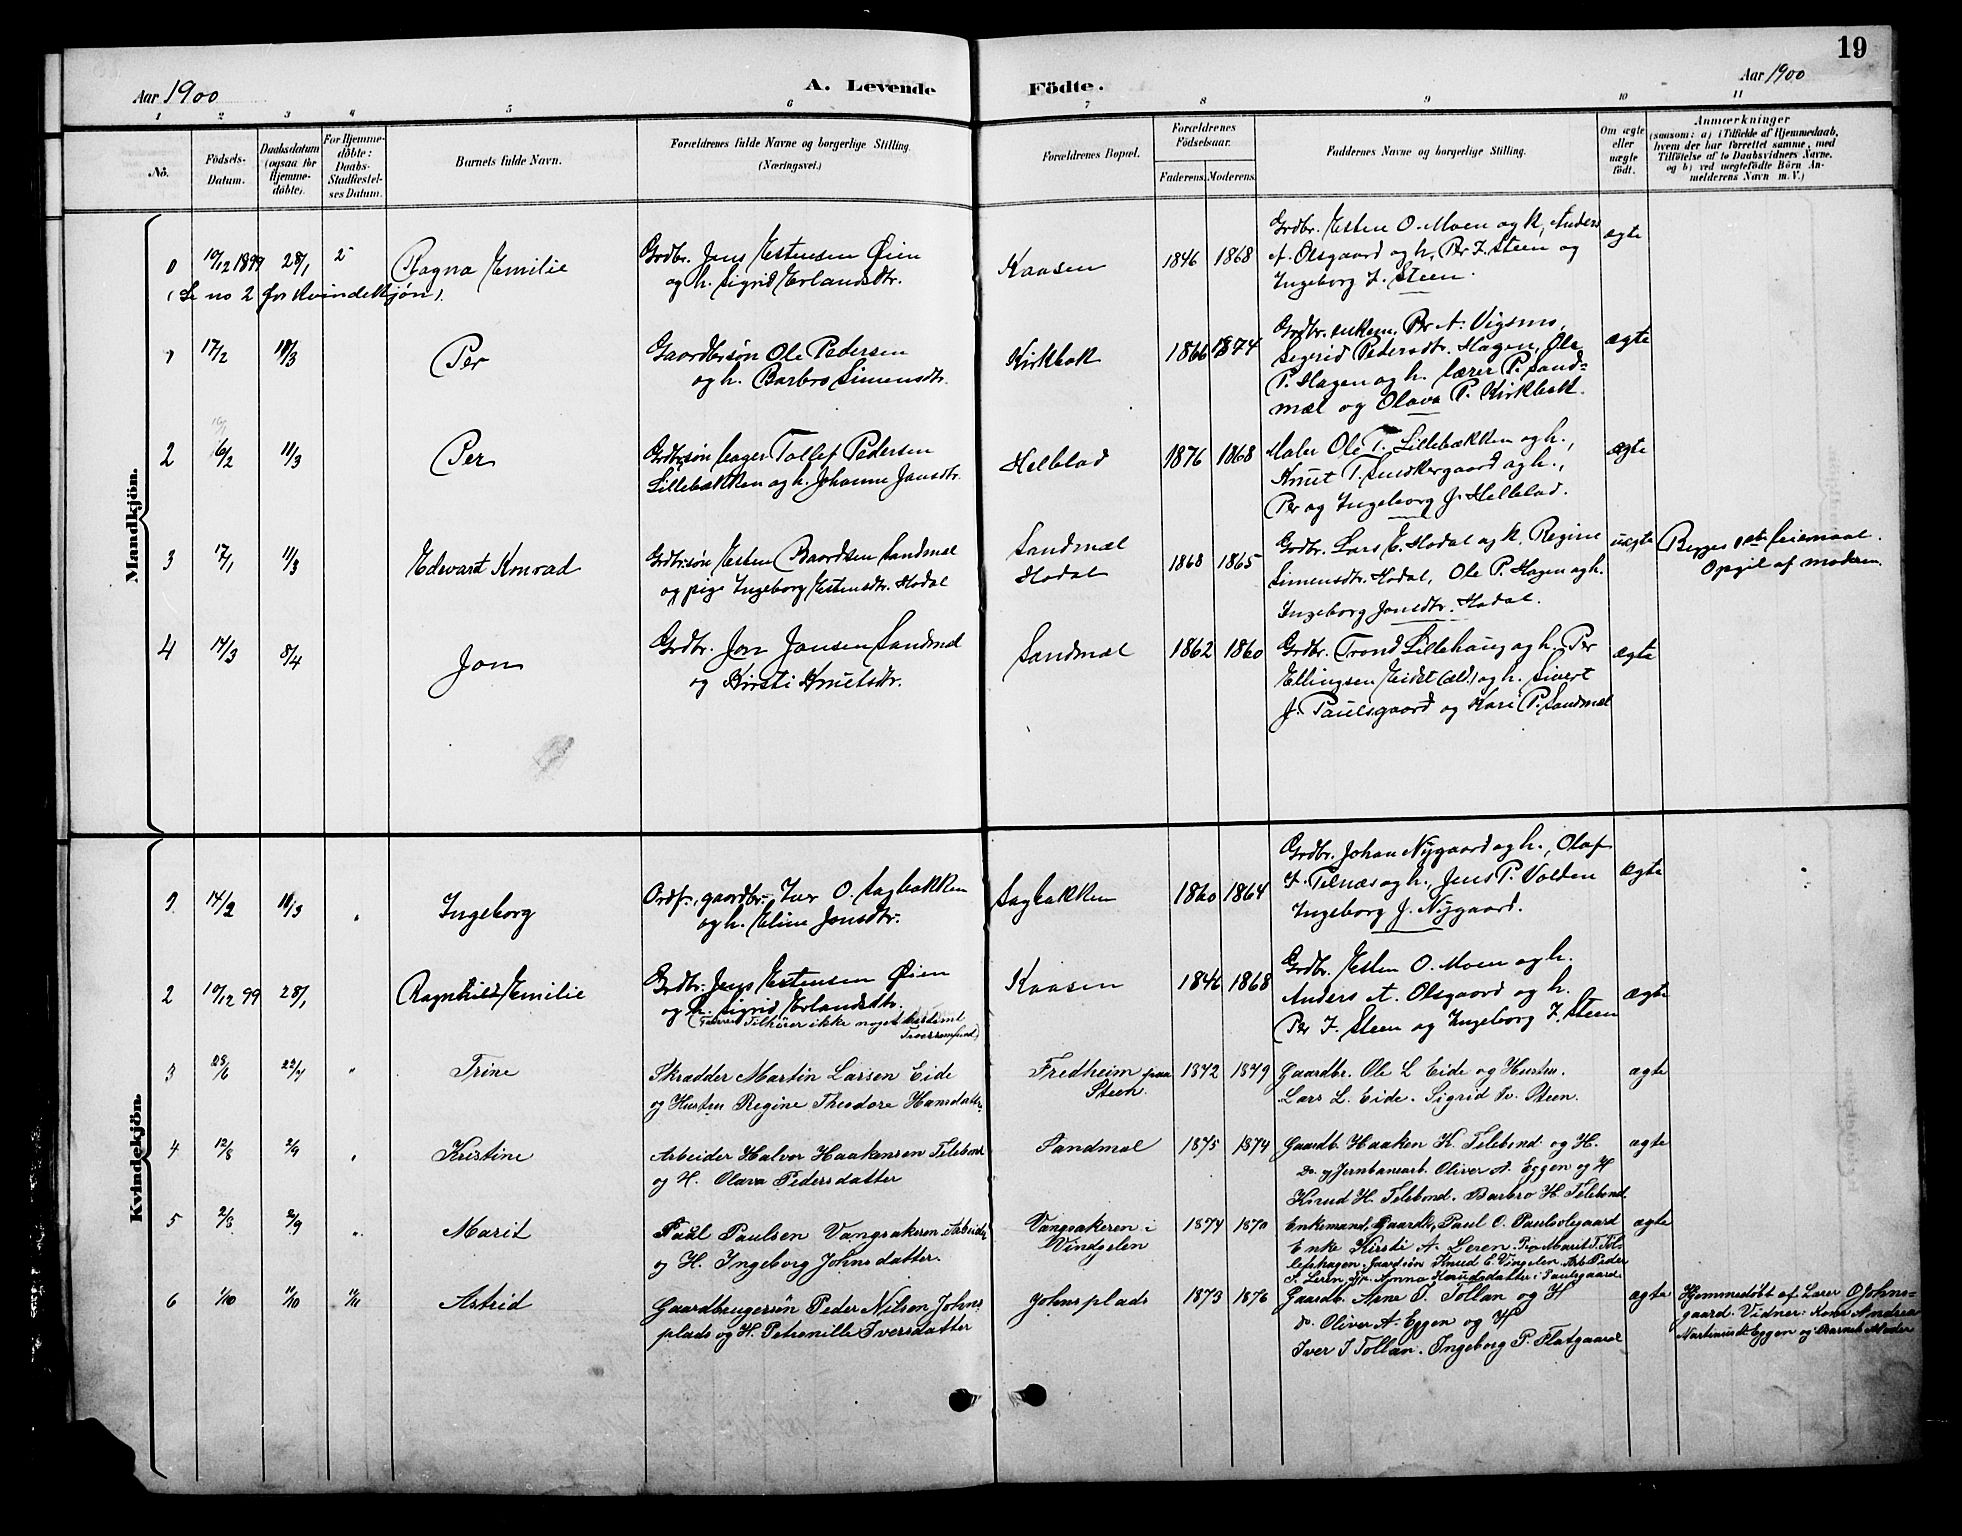 19
Aar 1900
A. Levende Födte.
Aar 1900
1 2 3 4 5 6 7 8 9 10 11
No.
Födsels-
Datum.
Daabsdatum
(ogsaa for
Hjemme-
döbte).
For Hjemme-
döbte:
Daabs-
Stadfæstel-
ses Datum.
Barnets fulde Navn.
Forældrenes fulde Navne og borgerlige Stilling
(Næringsvei.)
Forældrenes Bopæl.
Forældrenes
Födselsaar.
Faderens. Moderens.
Faddernes Navne og borgerlige Stilling.
Om ægte
eller
uægte
født.
Anmærkninger
(saasom: a) i Tilfælde af Hjemmedaab,
hvem der har forrettet samme, med
Tilføielse af to Daabsvidners Navne,
og b) ved uægtefödte Börn An-
melderens Navn m. V.)
Mandkjön.
10/12 1899 28/1 Ragna Emilie
Grdbr. Jens Estensen Øien
og h. Sigrid Erlandsdtr.
Kaasen 1846 1868
Grdbr. Esten O. Moen og k, Anders
A. Olsgaard og h, Per J. Steen og
Ingeborg J. Steen.
ægte
(Se no 2 for Kvindekjøn).
1 17/2 11/3 Per
Gaardbrsøn Ole Pedersen
og h. Barbro Simensdtr.
Kirkbak 1866 1874
Grdbr. enkem. Per A. Vigsmo,
Sigrid Pedersdtr. Hagen, Ole
P. Hagen og h. lærer P. Sand-
mæl og Olava P. Kirkbak.
ægte
2 6/2 11/3 Per
Grdbrsøn Tollef Pedersen
Lillebækken og h. Johanne Jonsdtr.
Helblad 1876 1868
Maler Ole T. Lillebækken og h.,
Knut T. og h.,
Per og Ingeborg J. Helblad.
ægte
3 17/1 11/3 Edevart Konrad
Grdbrsøn Esten Baardsen Sandmæl
og pige Ingeborg Estensdtr. Hodal
Sandmæl
Hodal
1868 1865
Grdbr. Lars E. Hodal og k. Regine
Simensdtr. Hodal, Ole P. Hagen og h.
Ingeborg Jonsdtr. Hodal.
uægte
Begges 1ste leiermaal.
Opgit af moderen.
4 14/3 8/4 Jon
Grdbr. Jon Jonsen Sandmæl
og Kirsti Knutsdtr.
Sandmæl 1862 1860
Grdbr. Trond Lillehaug og h. Per
Ellingsen Eidet (æld.) og h. Sivert
J. Paulsgaard og Kari P. Sandmæl
ægte
Kvindekjön.
1 14/2 11/3 " Ingeborg
Ordf., gaardbr. Iver O. Sagbakken
og h. Eline Jonsdtr.
Sagbakken 1860 1864
Grdbr. Johan Nygaard og h., Olaf
J. Telnæs og h., Jens P. Volden
Ingeborg J. Nygaard.
ægte
2 10/12 99 28/1 Ragnhild Emilie
Grdbr. Jens Estensen Øien
og h. Sigrid Erlandsdtr.
(Faderen tilhører ikke noget bestemt
Troessamfund)
Kaasen 1846 1868
Grdbr. Esten O. Moen og h.
Anders A. Olsgaard og h.
Per J. Steen og Ingeborg J. Steen
ægte
3 28/6 22/7 " Trine
Skrædder Martin Larsen Eide
og Hustru Regine Theodore Hansdatter
Fredheim paa
Steen.
1842 1849
Gaardbr. Ole L Eide og Hustru.
Lars L. Eide. Sigrid Tr. Steen.
ægte
4 12/8 2/9 " Kristine
Arbeider Halvor Haakensen Telebond
og H. Olava Pedersdatter
Sandmæl 1875 1874
Gaardb. Haaken K. Telebond og H.
Do. og Jernbanearb. Oliver A. Eggen og H
Knud H. Telebond. Barbro H. Telebond.
ægte
5 2/8 2/9 " Marit
Paul Paulsen Vangsakeren, Arbeider
og H. Ingeborg Johnsdatter.
Vangsakeren i
Vindgelen
1874 1870
Enkemand, Gaardb, Paul O. Paulsgaard
Enke Kirsti A. Leren. Pige Marit T. Tol-
lefshagen. Gaardsøn Knud E. Vingelen Arb. Peder
S. Leren Pige Anna Knudsdatter i Paulsgaard
ægte
6 1/10 11/10 11/11 Astrid
Gaardbrugersøn Peder Nilsen Johns
plads og H. Petronille Iversdatter
Johnsplads 1873 1876
Gaardb. Arne I. Tollan og H
Do. Oliver A. Eggen og H
Iver I Tollan. Ingeborg P. Flatgaard
ægte
Hjemmedøbt af Lærer O Johns-
gaard. Vidner: Kone Andrea
Martinusdt. Eggen og Barnets Moder